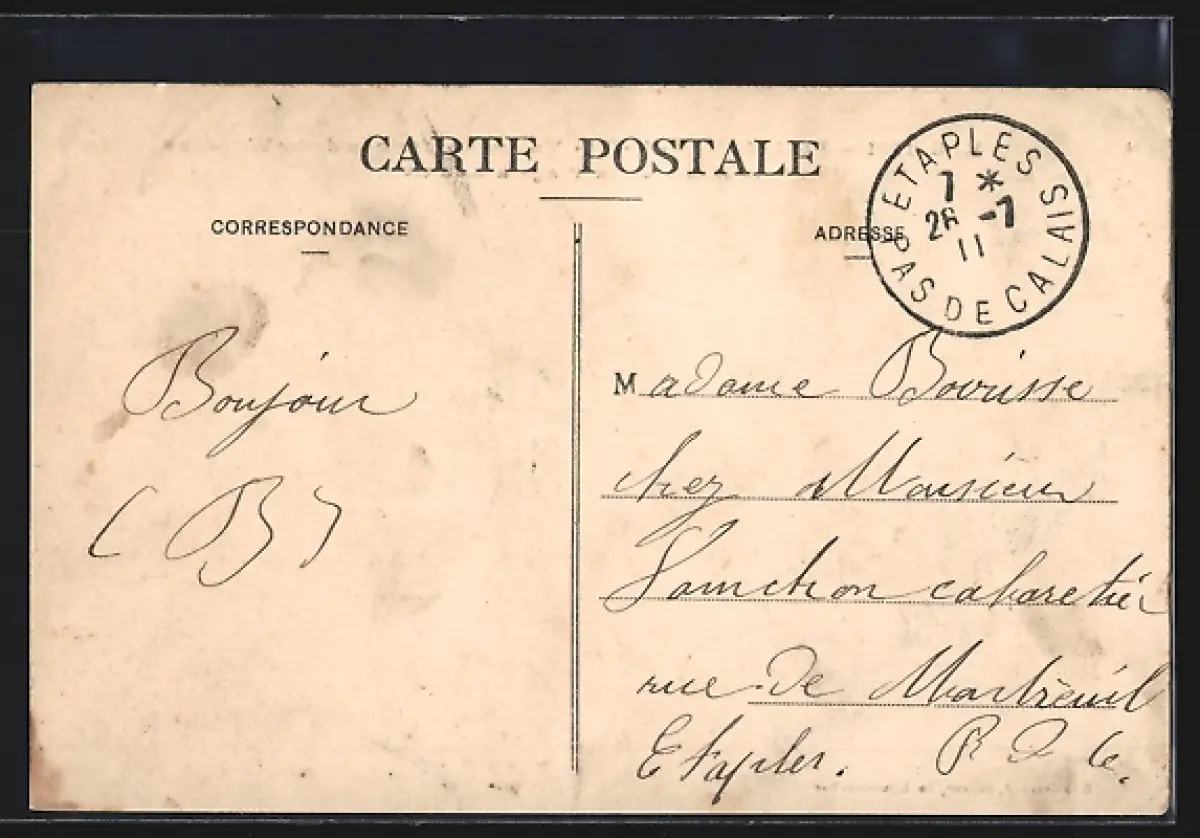 CARTE POSTALE
CORRESPONDANCE
ADRESSE
ETAPLES
7 *
26 -7
11
PAS DE CALAIS
Bonjour
(B)
Madame Bourisse
chez Monsieur
cabaretier
rue de Montreuil
Etaples. P D C.